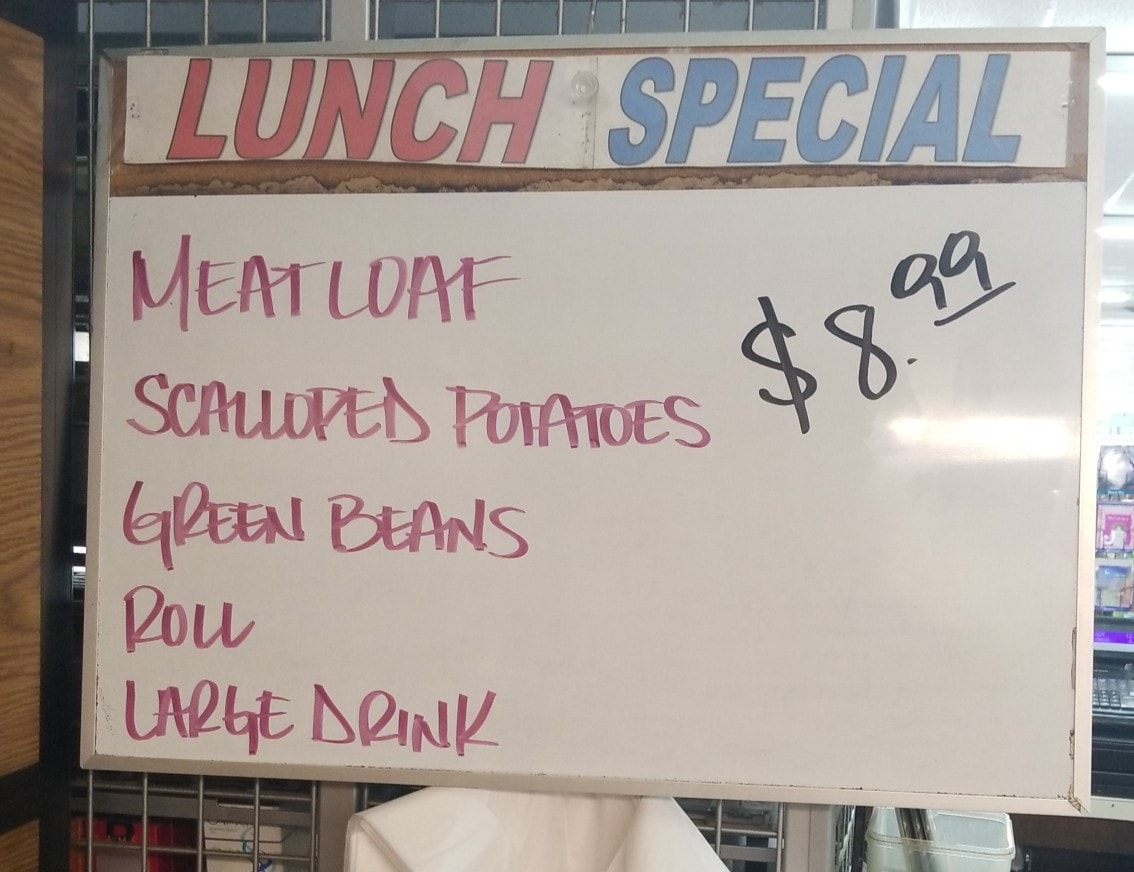 LUNCH SPECIAL
MEATLOAF
$8.99
SCALLOPED POTATOES
GREEN BEANS
ROLL
LARGE DRINK